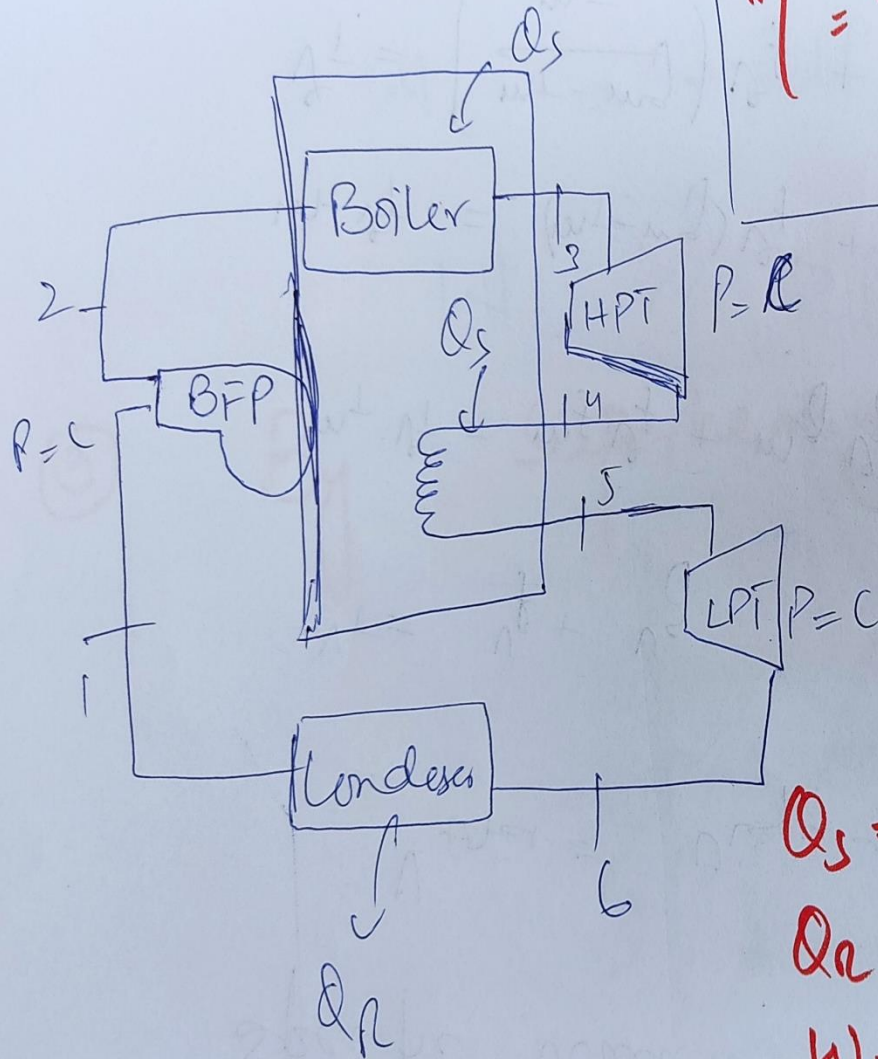 η =
Qs
Boiler
3
2
HPT
P=C
Qs
BFP
4
P=C
5
LPT P=C
1
Condeser
6
Qs =
QR
QR